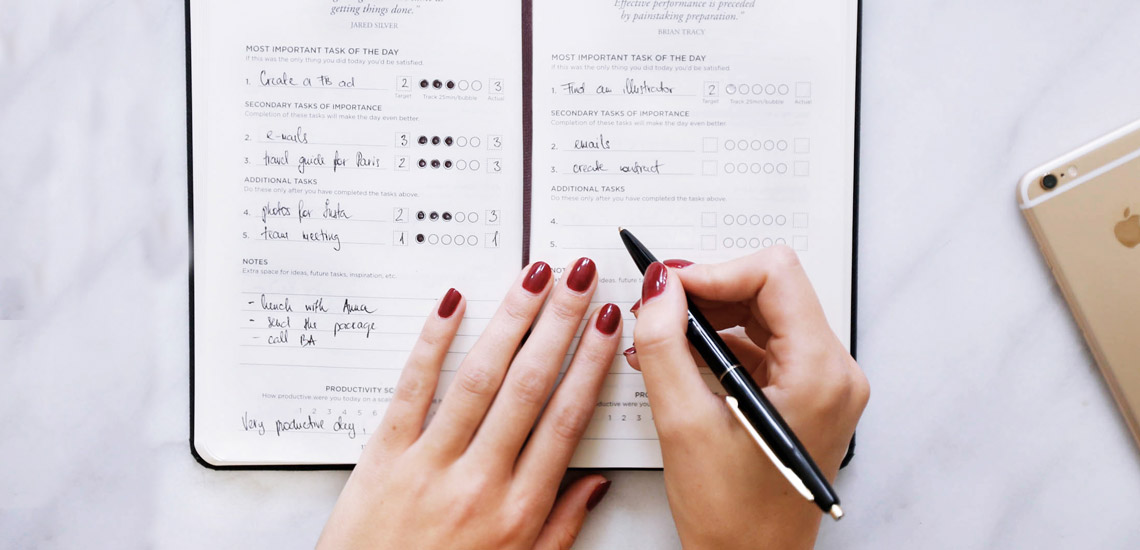 getting things done."
JARED SILVER
MOST IMPORTANT TASK OF THE DAY
If this was the only thing you did today you'd be satisfied.
1. Create a FB ad 2 3
Target Track 25min/bubble Actual
SECONDARY TASKS OF IMPORTANCE
Completion of these tasks will make the day even better.
2. e-mails 3 3
3. travel guide for Paris 2 3
ADDITIONAL TASKS
Do these only after you have completed the tasks above.
4. photos for Insta 2 3
5. team meeting 1 1
NOTES
Extra space for ideas, future tasks, inspiration, etc.
- lunch with Anna
- send the package
- call BA
PRODUCTIVITY SC
How productive were you today on a scale
1 2 3 4 5 6
Very productive day,
Effective performance is preceded
by painstaking preparation."
BRIAN TRACY
MOST IMPORTANT TASK OF THE DAY
If this was the only thing you did today you'd be satisfied.
1. Find an illustrator 2
Target Track 25min/bubble Actual
SECONDARY TASKS OF IMPORTANCE
Completion of these tasks will make the day even better.
2. emails
3. create contract
ADDITIONAL TASKS
Do these only after you have completed the tasks above.
4.
5.
ideas, future tasks, inspiration, etc.
PRO
ductive were you
1 2 3